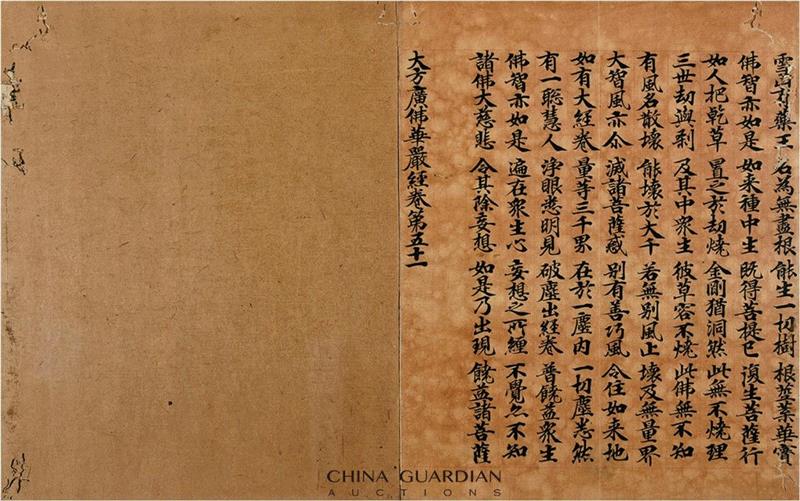 雪山有藥王 名為無盡根 能生一切樹 根莖葉華實
佛智亦如是 如来種中生 既得菩提已 復生菩薩行
如人把乾草 置之於劫燒 金剛猶洞然 此無不燒理
三世劫與剎 及其中衆生 彼草容不燒 此佛無不知
有風名散壞 能壞於大千 若無別風止 壞及無量界
大智風亦尒 滅諸菩薩惑 別有善巧風 令住如来地
如有大經卷 量等三千界 在於一塵内 一切塵悉然
有一聡慧人 淨眼悉明見 破塵出經卷 普饒益衆生
佛智亦如是 遍在衆生心 妄想之所纏 不覺亦不知
諸佛大慈悲 令其除妄想 如是乃出現 饒益諸菩薩
大方廣佛華嚴經卷第五十一
CHINA GUARDIAN
AUCTIONS